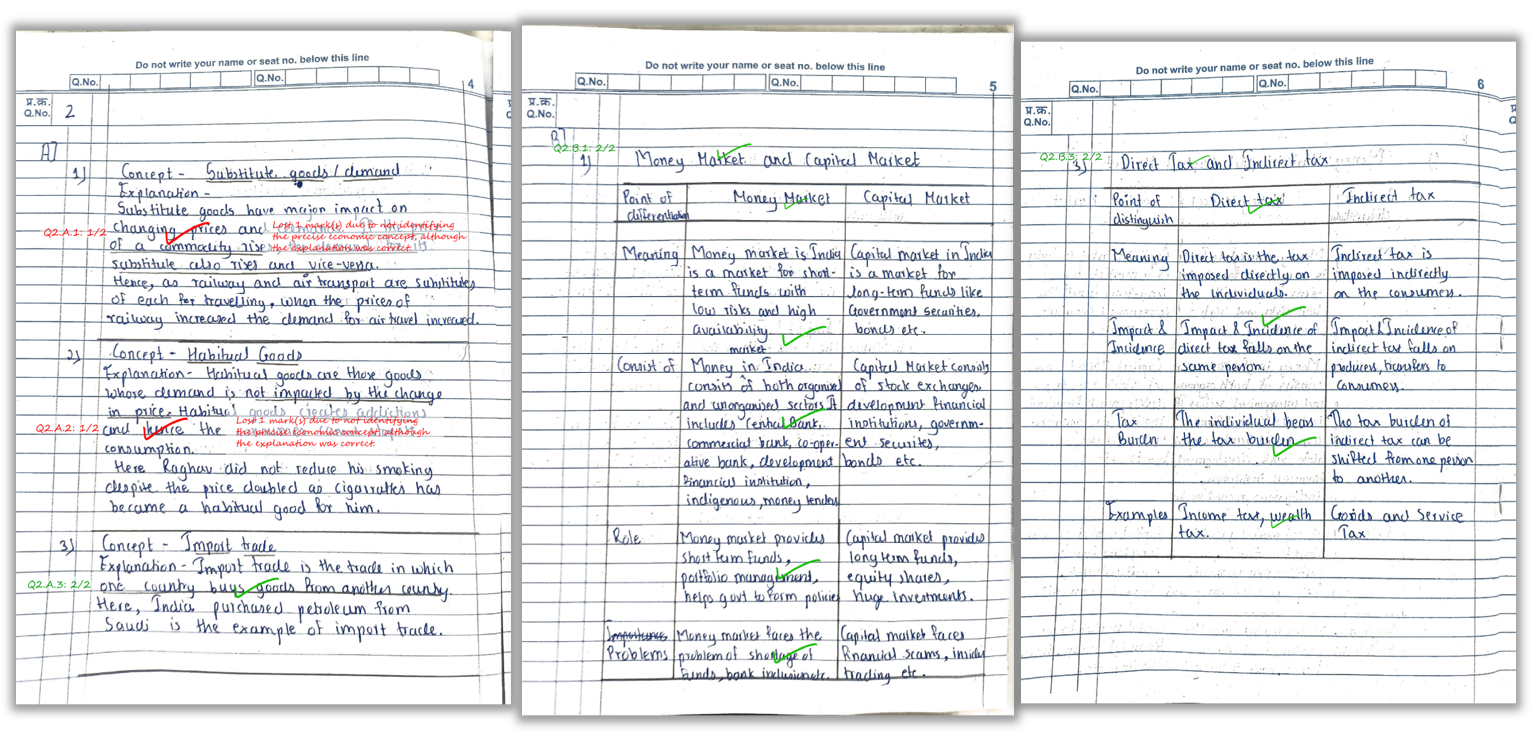 Do not write your name or seat no. below this line
Q.No.
Q.No.
4
प्र.क्र.
Q.No.
2
A]
1)
Concept - Substitute goods / demand
Explanation -
Substitute goods have major impact on
changing prices and
Q2.A.1: 1/2
Lost 1 mark(s) due to not identifying
the precise economic concept, although
the explanation was correct.
of a commodity rise
substitute also rises and vice-versa.
Hence, as railway and air transport are substitutes
of each for travelling, when the prices of
railway increased the demand for air travel increased.
2)
Concept - Habitual Goods
Explanation - Habitual goods are those goods
whose demand is not impacted by the change
in price. Habitual goods creates addictions
Q2.A.2: 1/2
Lost 1 mark(s) due to not identifying
the precise economic concept, although
the explanation was correct.
and hence the
consumption.
Here Raghav did not reduce his smoking
despite the price doubled as cigarrattes has
became a habitual good for him.
3)
Concept - Import trade
Explanation - Import trade is the trade in which
Q2.A.3: 2/2
one country buys goods from another country.
Here, India purchased petroleum from
Saudi is the example of import trade.
Do not write your name or seat no. below this line
Q.No.
Q.No.
5
प्र.क्र.
Q.No.
Q2.B.1: 2/2
1)
Money Market and Capital Market
Point of differentiation
Money Market
Capital Market
Meaning
Money market is India
is a market for short-
term funds with
low risks and high
availability
market
Capital market in India
is a market for
long-term funds like
Government securities,
bonds etc.
Consist of
Money in India
consits of both organised
and unorganised sectors. It
includes Central bank,
commercial bank, co-oper-
ative bank, development
financial institution,
indigenous, money lenders
Capital Market consists
of stock exchanges
development financial
institutions, governm-
ent securites,
bonds etc.
Role
Money market provides
short term funds,
portfolio management,
helps govt to form policies
Capital market provides
long term funds,
equity shares,
huge investments.
Importance
Problems
Money market faces the
problem of shortage of
funds, bank
Capital market faces
financial scams, insider
trading etc.
Do not write your name or seat no. below this line
Q.No.
Q.No.
6
प्र.क्र.
Q.No.
Q2.B.3: 2/2
3)
Direct Tax and Indirect tax
Point of
distinguish
Direct tax
Indirect tax
Meaning
Direct tax is the tax
imposed directly on
the individuals.
Indirect tax is
imposed indirectly
on the consumers.
Impact &
Incidence
Impact & Incidence of
direct tax falls on the
same person.
Impact & Incidence of
indirect tax falls on
producers, transfers to
consumers.
Tax
Burden
The individual bears
the tax burden
The tax burden of
indirect tax can be
shifted from one person
to another.
Examples
Income tax, wealth
tax.
Goods and Service
Tax